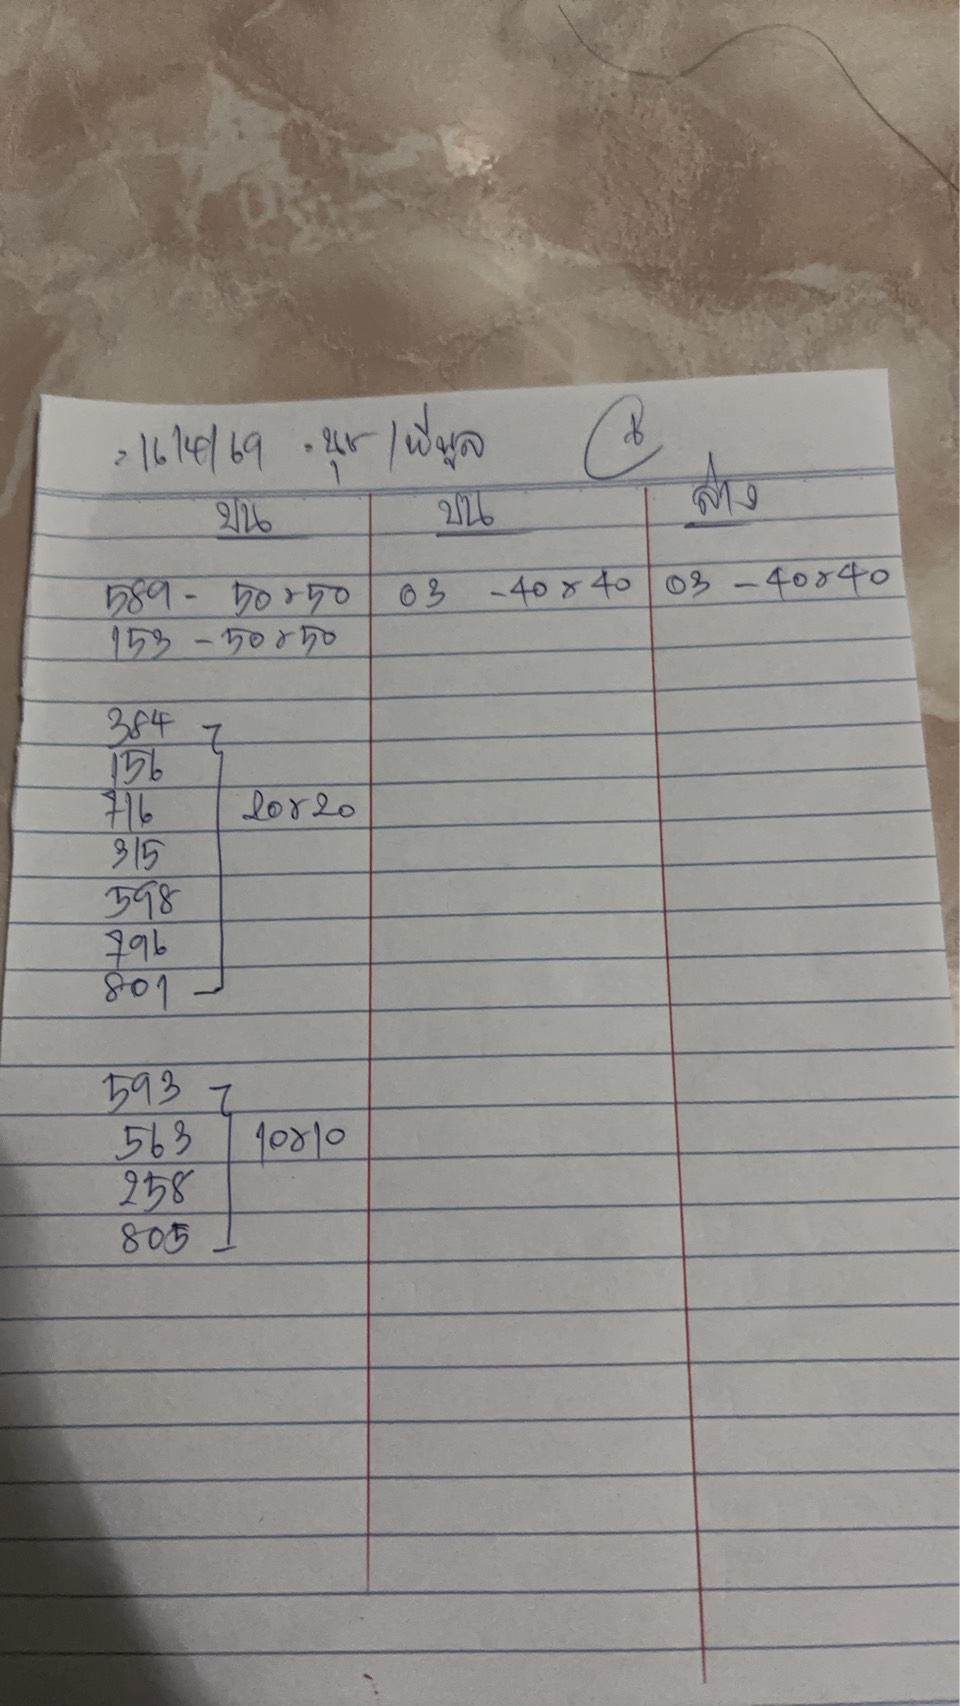 16/4/69 นุช/พี่พูล
บน บน ล่าง
589 - 50x50 03 - 40x40 03 - 40x40
153 - 50x50
384
156
716 20x20
315
598
796
801
593
563 10x10
258
805